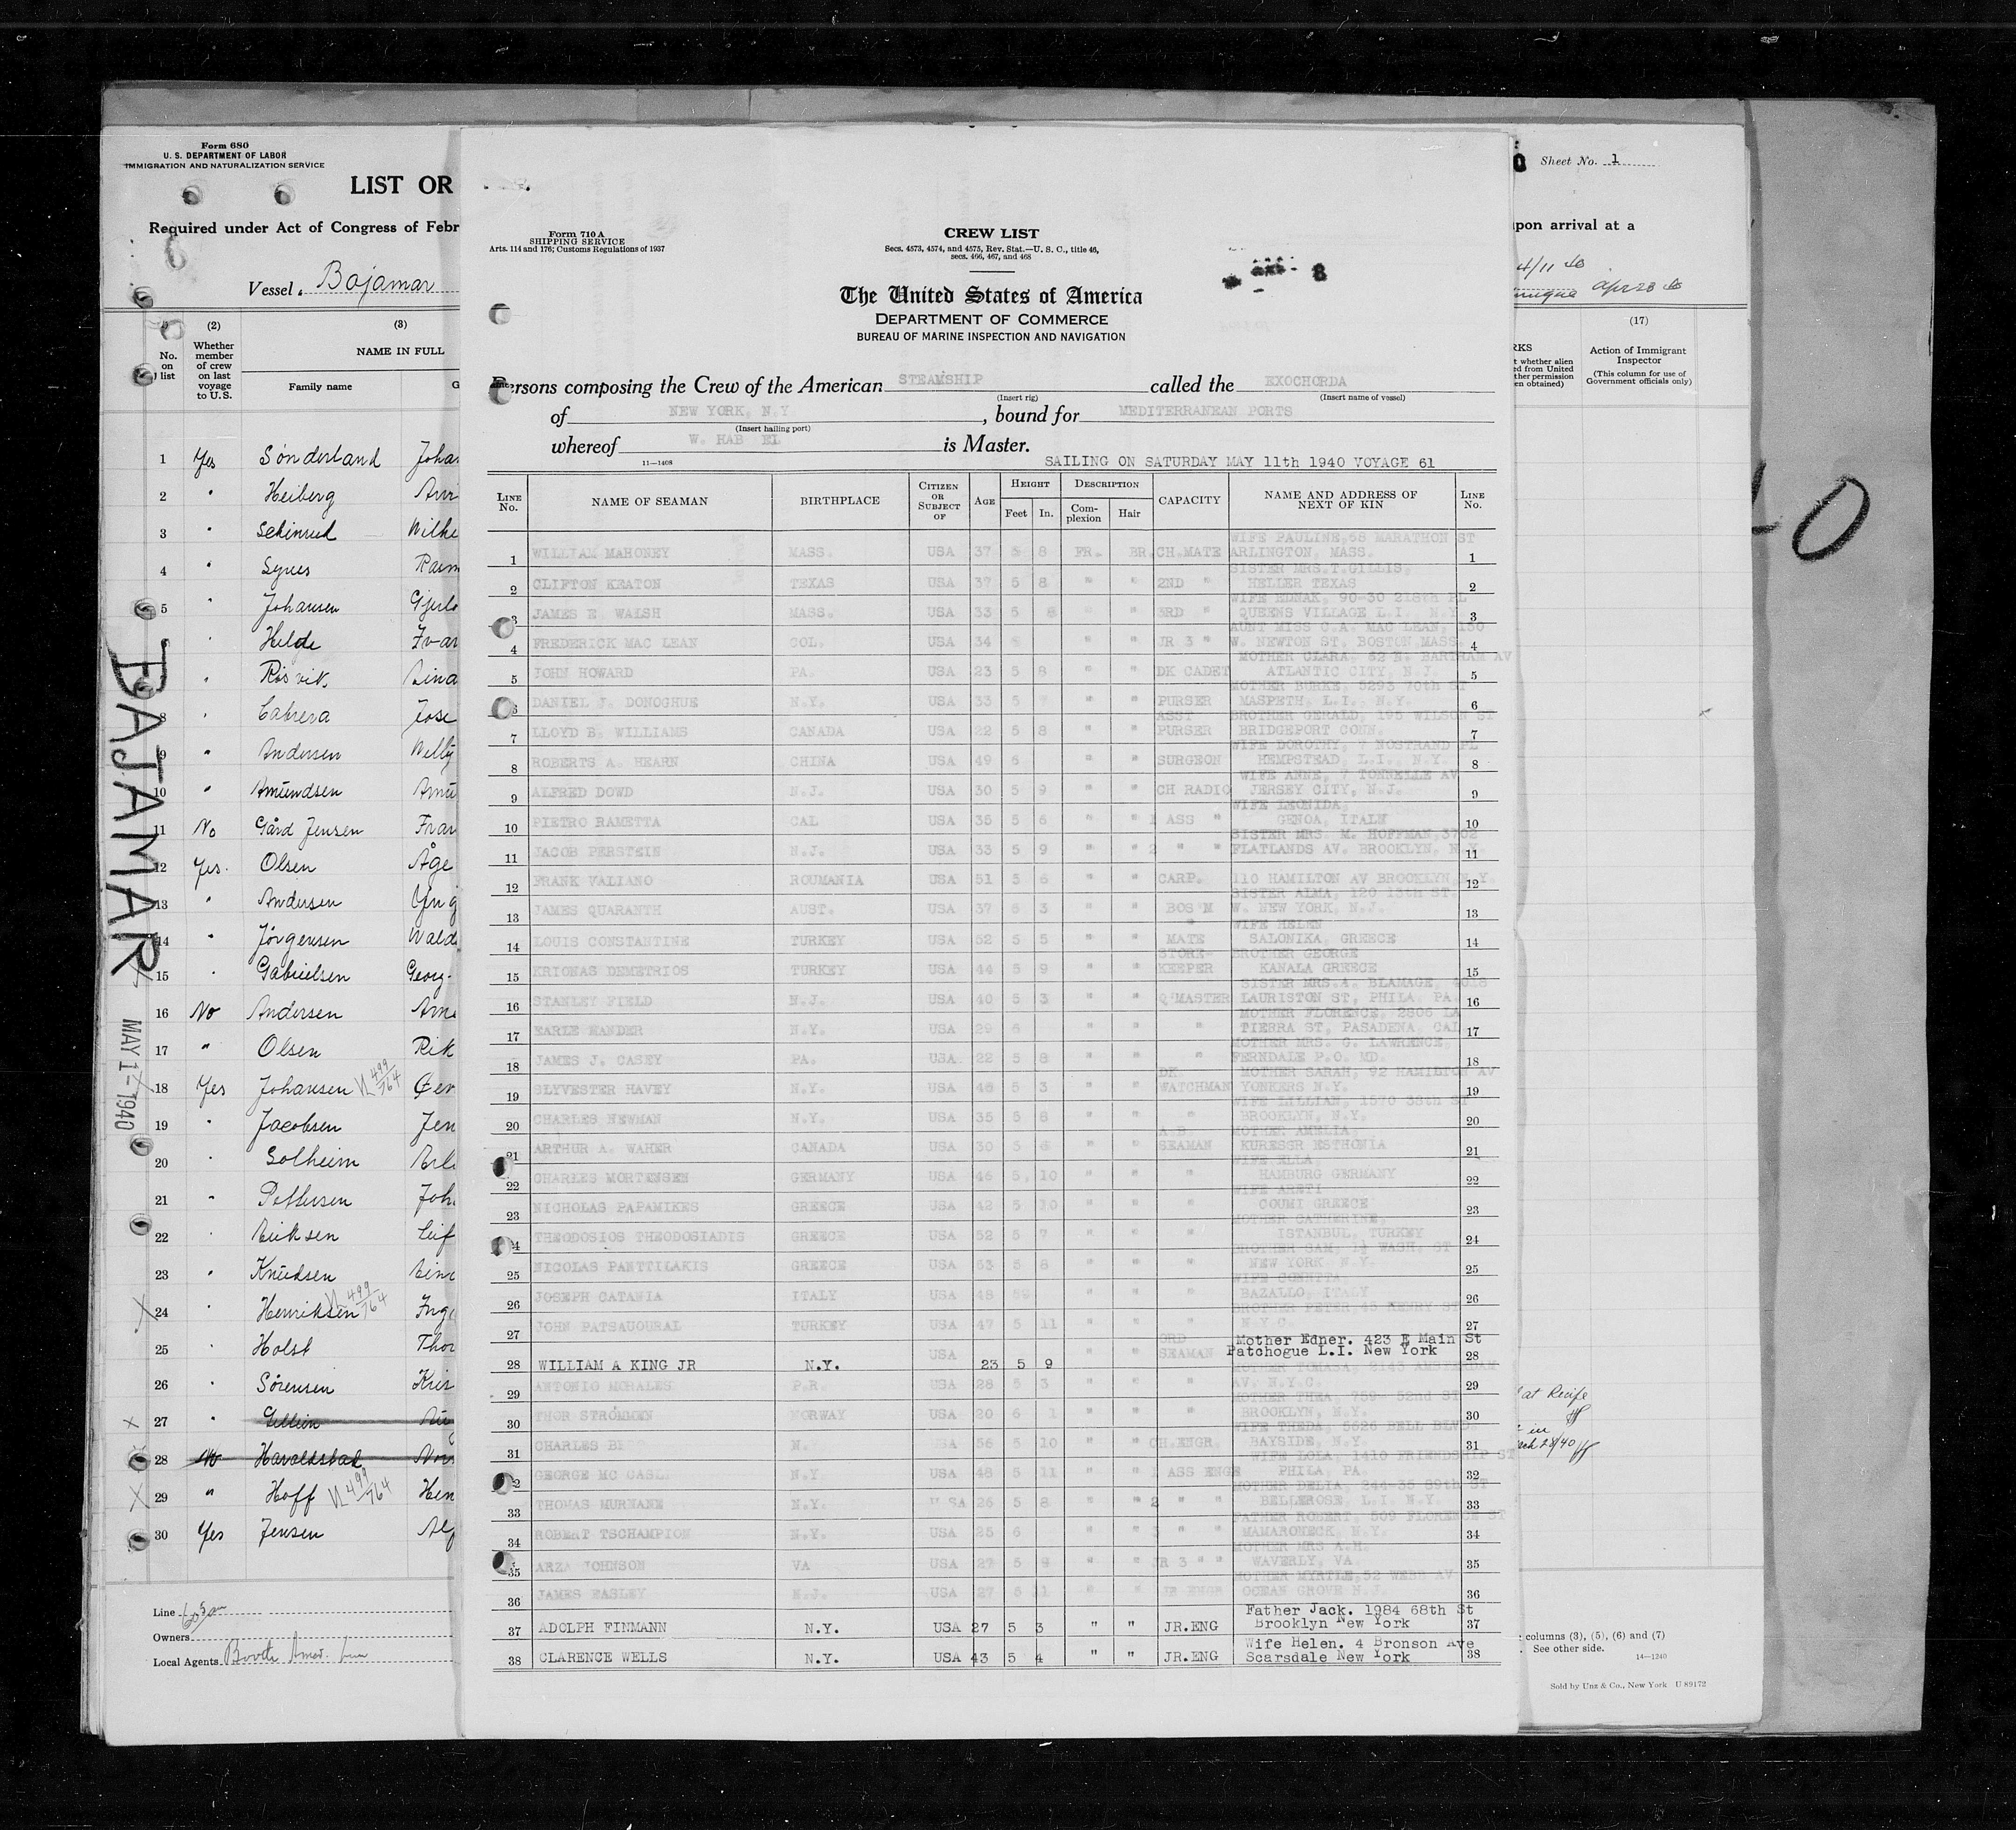 Form 680
U. S. DEPARTMENT OF LABOR
IMMIGRATION AND NATURALIZATION SERVICE
LIST OR
Required under Act of Congress of Febr
Vessel Bajamar
(2) (3)
No. on list
Whether member of crew on last voyage to U.S.
NAME IN FULL
Family name G
1 Yes Sonderland Joha
2 " Heiberg
3 " Wilhe
4 "
5 " Johansen
" Helde Ivar
" Risvik Eina
8 " Cabrera Jose
9 " Andersen Willy
10 " Amundsen Amu
11 No Gård Jensen Fran
12 Yes. Olsen Åge
13 " Andersen Yng
14 " Jörgensen Wald
15 " Gabrielsen Georg
16 No Andersen Arne
17 " Olsen Rik
18 Yes Johansen 499/764
19 " Jacobsen Jen
20 " Solheim
21 " Pettersen Joh
22 " Eriksen Leif
23 " Knudsen Eina
24 " Henriksen 499/764 Inge
25 " Holst Thor
26 " Sörensen Kris
27 "
28 No Haraldstad
29 " Hoff 499/764 Hen
30 Yes Jensen Alf
BAJAMAR
MAY 1-1940
Line
Owners
Local Agents Booth Amer. Line
Form 710 A
SHIPPING SERVICE
Arts. 114 and 176; Customs Regulations of 1937
CREW LIST
Secs. 4573, 4574, and 4575, Rev. Stat.—U. S. C., title 46,
secs. 466, 467, and 468
8
The United States of America
DEPARTMENT OF COMMERCE
BUREAU OF MARINE INSPECTION AND NAVIGATION
Persons composing the Crew of the American STEAMSHIP called the EXOCHORDA
(Insert rig) (Insert name of vessel)
of NEW YORK, N.Y. , bound for MEDITERRANEAN PORTS
(Insert hailing port)
whereof W. HAB EL is Master.
11—1408
SAILING ON SATURDAY MAY 11th 1940 VOYAGE 61
LINE No. NAME OF SEAMAN BIRTHPLACE CITIZEN OR SUBJECT OF AGE HEIGHT Feet In. DESCRIPTION Complexion Hair CAPACITY NAME AND ADDRESS OF NEXT OF KIN LINE No.
WIFE PAULINE,58 MARATHON ST
1 WILLIAM MAHONEY MASS. USA 37 5 8 FR. BR. CH.MATE ARLINGTON, MASS. 1
SISTER MRS.T.GILLIS,
2 CLIFTON KEATON TEXAS USA 37 5 8 " " 2ND " HELLER TEXAS 2
WIFE EDNAK, 90-30 218th PL
3 JAMES E. WALSH MASS. USA 33 5 8 " " 3RD " QUEENS VILLAGE L.I. N.Y. 3
AUNT MISS C.A. MAC LEAN, 150
4 FREDERICK MAC LEAN COL. USA 34 " " JR 3 " W. NEWTON ST, BOSTON MASS 4
MOTHER CLARA, 62 N. BARTRAM AV
5 JOHN HOWARD PA. USA 23 5 8 " " DK CADET ATLANTIC CITY, N.J. 5
MOTHER BURKE, 5293 70th ST
6 DANIEL J. DONOGHUE N.Y. USA 33 5 7 " " PURSER MASPETH, L.I., N.Y. 6
ASST BROTHER GERALD, 195 WILSON ST
7 LLOYD B. WILLIAMS CANADA USA 22 5 8 " " PURSER BRIDGEPORT CONN. 7
WIFE DOROTHY, 7 NOSTRAND PL
8 ROBERTS A. HEARN CHINA USA 49 6 " " SURGEON HEMPSTEAD, L.I., N.Y. 8
WIFE ANNE, 7 TONNELLE AV
9 ALFRED DOWD N.J. USA 30 5 9 " " CH RADIO JERSEY CITY, N.J. 9
WIFE LEONIDA,
10 PIETRO RAMETTA CAL USA 35 5 6 " " 1 ASS " GENOA, ITALY 10
SISTER MRS. M. HOFFMAN,3702
11 JACOB PERSTEIN N.J. USA 33 5 9 " " 2 " " FLATLANDS AV. BROOKLYN, N.Y. 11
12 FRANK VALIANO ROUMANIA USA 51 5 6 " " CARP. 110 HAMILTON AV BROOKLYN N.Y. 12
SISTER ALMA, 120 13th ST.
13 JAMES QUARANTH AUST. USA 37 5 3 " " BOS'N W. NEW YORK, N.J. 13
" WIFE HELEN
14 LOUIS CONSTANTINE TURKEY USA 52 5 5 " " MATE SALONIKA, GREECE 14
STORE- BROTHER GEORGE
15 KRIONAS DEMETRIOS TURKEY USA 44 5 9 " " KEEPER KANALA GREECE 15
SISTER MRS.A. BLAMAGE,
16 STANLEY FIELD N.J. USA 40 5 3 " " Q'MASTER LAURISTON ST, PHILA. PA. 16
MOTHER FLORENCE, 2806 LA
17 EARLE MANDER N.Y. USA 29 6 " " " TIERRA ST, PASADENA, CAL 17
MOTHER MRS. G. LAWRENCE,
18 JAMES J. CASEY PA. USA. 22 5 8 " " " FERNDALE P.O. MD. 18
DK. MOTHER SARAH, 92 HAMILTON AV
19 SLYVESTER HAVEY N.Y. USA 46 5 3 " " WATCHMAN YONKERS N.Y. 19
WIFE LILLIAN, 1570 38th ST
20 CHARLES NEWMAN N.Y. USA 35 5 8 " " " BROOKLYN, N.Y. 20
A.B. MOTHER AMELIA
21 ARTHUR A. WAHER CANADA USA 30 5 6 " " SEAMAN KURESSR ESTHONIA 21
WIFE ELLA
22 CHARLES MORTENSEN GERMANY USA 46 5 10 " " " HAMBURG GERMANY 22
WIFE ARETI
23 NICHOLAS PAPAMIKES GREECE USA 42 5 10 " " " COUMI GREECE 23
MOTHER CATHERINE,
24 THEODOSIOS THEODOSIADIS GREECE USA 52 5 7 " " " ISTANBUL, TURKEY 24
BROTHER SAM, 1½ WASH. ST
25 NICOLAS PANTTILAKIS GREECE USA 63 5 8 " " " NEW YORK N.Y. 25
WIFE CONNITA
26 JOSEPH CATANIA ITALY USA 48 " " " BAZALLO, ITALY 26
BROTHER PETER,45 HENRY ST
27 JOHN PATSAUOURAL TURKEY USA 47 5 11 " " " N.Y.C. 27
ORD Mother Edner. 423 E Main St
28 WILLIAM A KING JR N.Y. USA 23 5 9 SEAMAN Patchogue L.I. New York 28
29 ANTONIO MORALES P.R. USA 28 5 3 " " " AV. N.Y.C. 29
MOTHER THEA, 759- 52nd ST
30 THOR STROMMEN NORWAY USA 20 6 1 " " " BROOKLYN, N.Y. 30
WIFE THEDA, 5626 BELL BLVD
31 CHARLES N. USA 56 5 10 " " CH.ENGR. BAYSIDE, N.Y. 31
WIFE LOLA, 1410 FRIENDSHIP ST
32 GEORGE MC CASL N.Y. USA 48 5 11 " " 1 ASS ENGR PHILA, PA. 32
MOTHER DELIA, 244-35 89th ST
33 THOMAS MURNANE N.Y. USA 26 5 8 " " 2 " " BELLEROSE, L.I. N.Y. 33
FATHER ROBERT, 509 FLORENCE ST
34 ROBERT TSCHAMPION N.Y. USA 25 6 " " 3 " " MAMARONECK, N.Y. 34
MOTHER MRS A.H.
35 ARZA JOHNSON VA USA 27 5 9 " " JR 3 " " WAVERLY, VA. 35
MOTHER MYRTLE,52 WEBB AV
36 JAMES EASLEY N.J. USA 27 6 1 " " JR ENGR OCEAN GROVE N.J. 36
Father Jack. 1984 68th St
37 ADOLPH FINMANN N.Y. USA 27 5 3 " " JR.ENG Brooklyn New York 37
Wife Helen. 4 Bronson Ave
38 CLARENCE WELLS N.Y. USA 43 5 4 " " JR.ENG Scarsdale New York 38
Sheet No. 1
upon arrival at a
4/11 40
Apr 28 40
(17)
RKS
Action of Immigrant Inspector
(This column for use of Government officials only)
at Recife
columns (3), (5), (6) and (7)
See other side.
14—1240
Sold by Unz & Co., New York U 89172